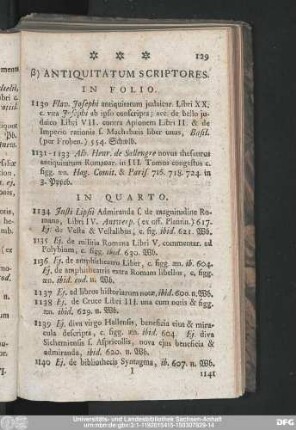 ✲ ✲ ✲ 129
β) ANTIQUITATUM SCRIPTORES.
IN FOLIO.
1130 Flav. Josephi antiquitatum judaicar. Libri XX.
c. vita Josephi ab ipso conscripta; acc. de bello ju-
daico Libri VII. contra Apionem Libri II. & de
Imperio rationis s. Machabæis liber unus, Basil.
(per Froben.) 554. Schwlb.
1131-1133 Alb. Henr. de Sallengre novus thesaurus
antiquitatum Romanar. in III. Tomos congestus c.
figg. nn. Hag. Comit. & Paris. 716. 718. 724. in
3. Ppprb.
IN QUARTO.
1134 Justi Lipsii Admiranda s. de magnitudine Ro-
mana, Libri IV. Antverp. (ex off. Plantin.) 617.
Ej. de Vesta & Vestalibus, c. fig. ibid. 621. Wb.
1135 Ej. de militia Romana Libri V. commentar. ad
Polybium, c. figg. ibid. 630. Wb.
1136 Ej. de amphitheatro Liber, c. figg. nn. ib. 604.
Ej. de amphitheatris extra Romam libellus, c. figg.
nn. ibid. eod. n. Wb.
1137 Ej. ad libros historiarum notæ, ibid. 600. n. Wb.
1138 Ej. de Cruce Libri III. una cum notis & figg.
nn. ibid. 629. n. Wb.
1139 Ej. diva virgo Hallensis, beneficia eius & mira-
cula descripta, c. figg. nn. ibid. 604. Ej. diva
Sichemiensis s. Aspricollis, nova ejus beneficia &
admiranda, ibid. 620. n. Wb.
1140 Ej. de bibliothecis Syntagma, ib. 607. n. Wb.
I 1141
Universitäts- und Landesbibliothek Sachsen-Anhalt